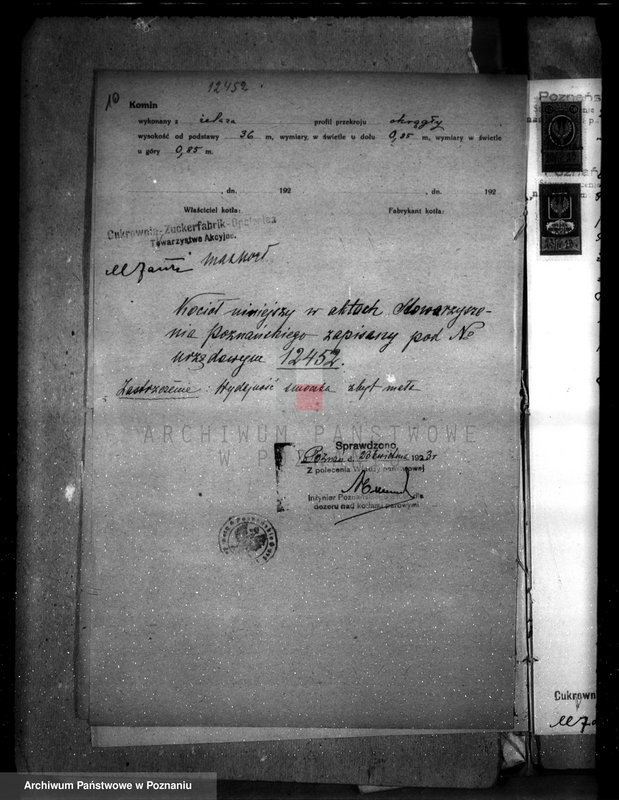 12452
10
Komin
wykonany z żelaza profil przekroju okrągły
wysokość od podstawy 36 m, wymiary, w świetle u dołu 0,85 m, wymiary w świetle
u góry 0,85 m.
, dn. 192 , dn. 192
Właściciel kotła: Fabrykant kotła:
Cukrownia-Zuckerfabrik-Opalenica
Towarzystwo Akcyjne.
Kocioł niniejszy w aktach Stowarzysze-
nia Poznańskiego zapisany pod No
urzędowym 12452.
Zastrzeżenie: Wydajność zbyt mała
ARCHIWUM PAŃSTWOWE
W P
Sprawdzono,
Poznań d. 26 kwietnia 1923 r
Z polecenia Władzy państwowej
Inżynier Poznańskiego
dozoru nad kotłami parowymi
Poznańs
Cukrown
Archiwum Państwowe w Poznaniu